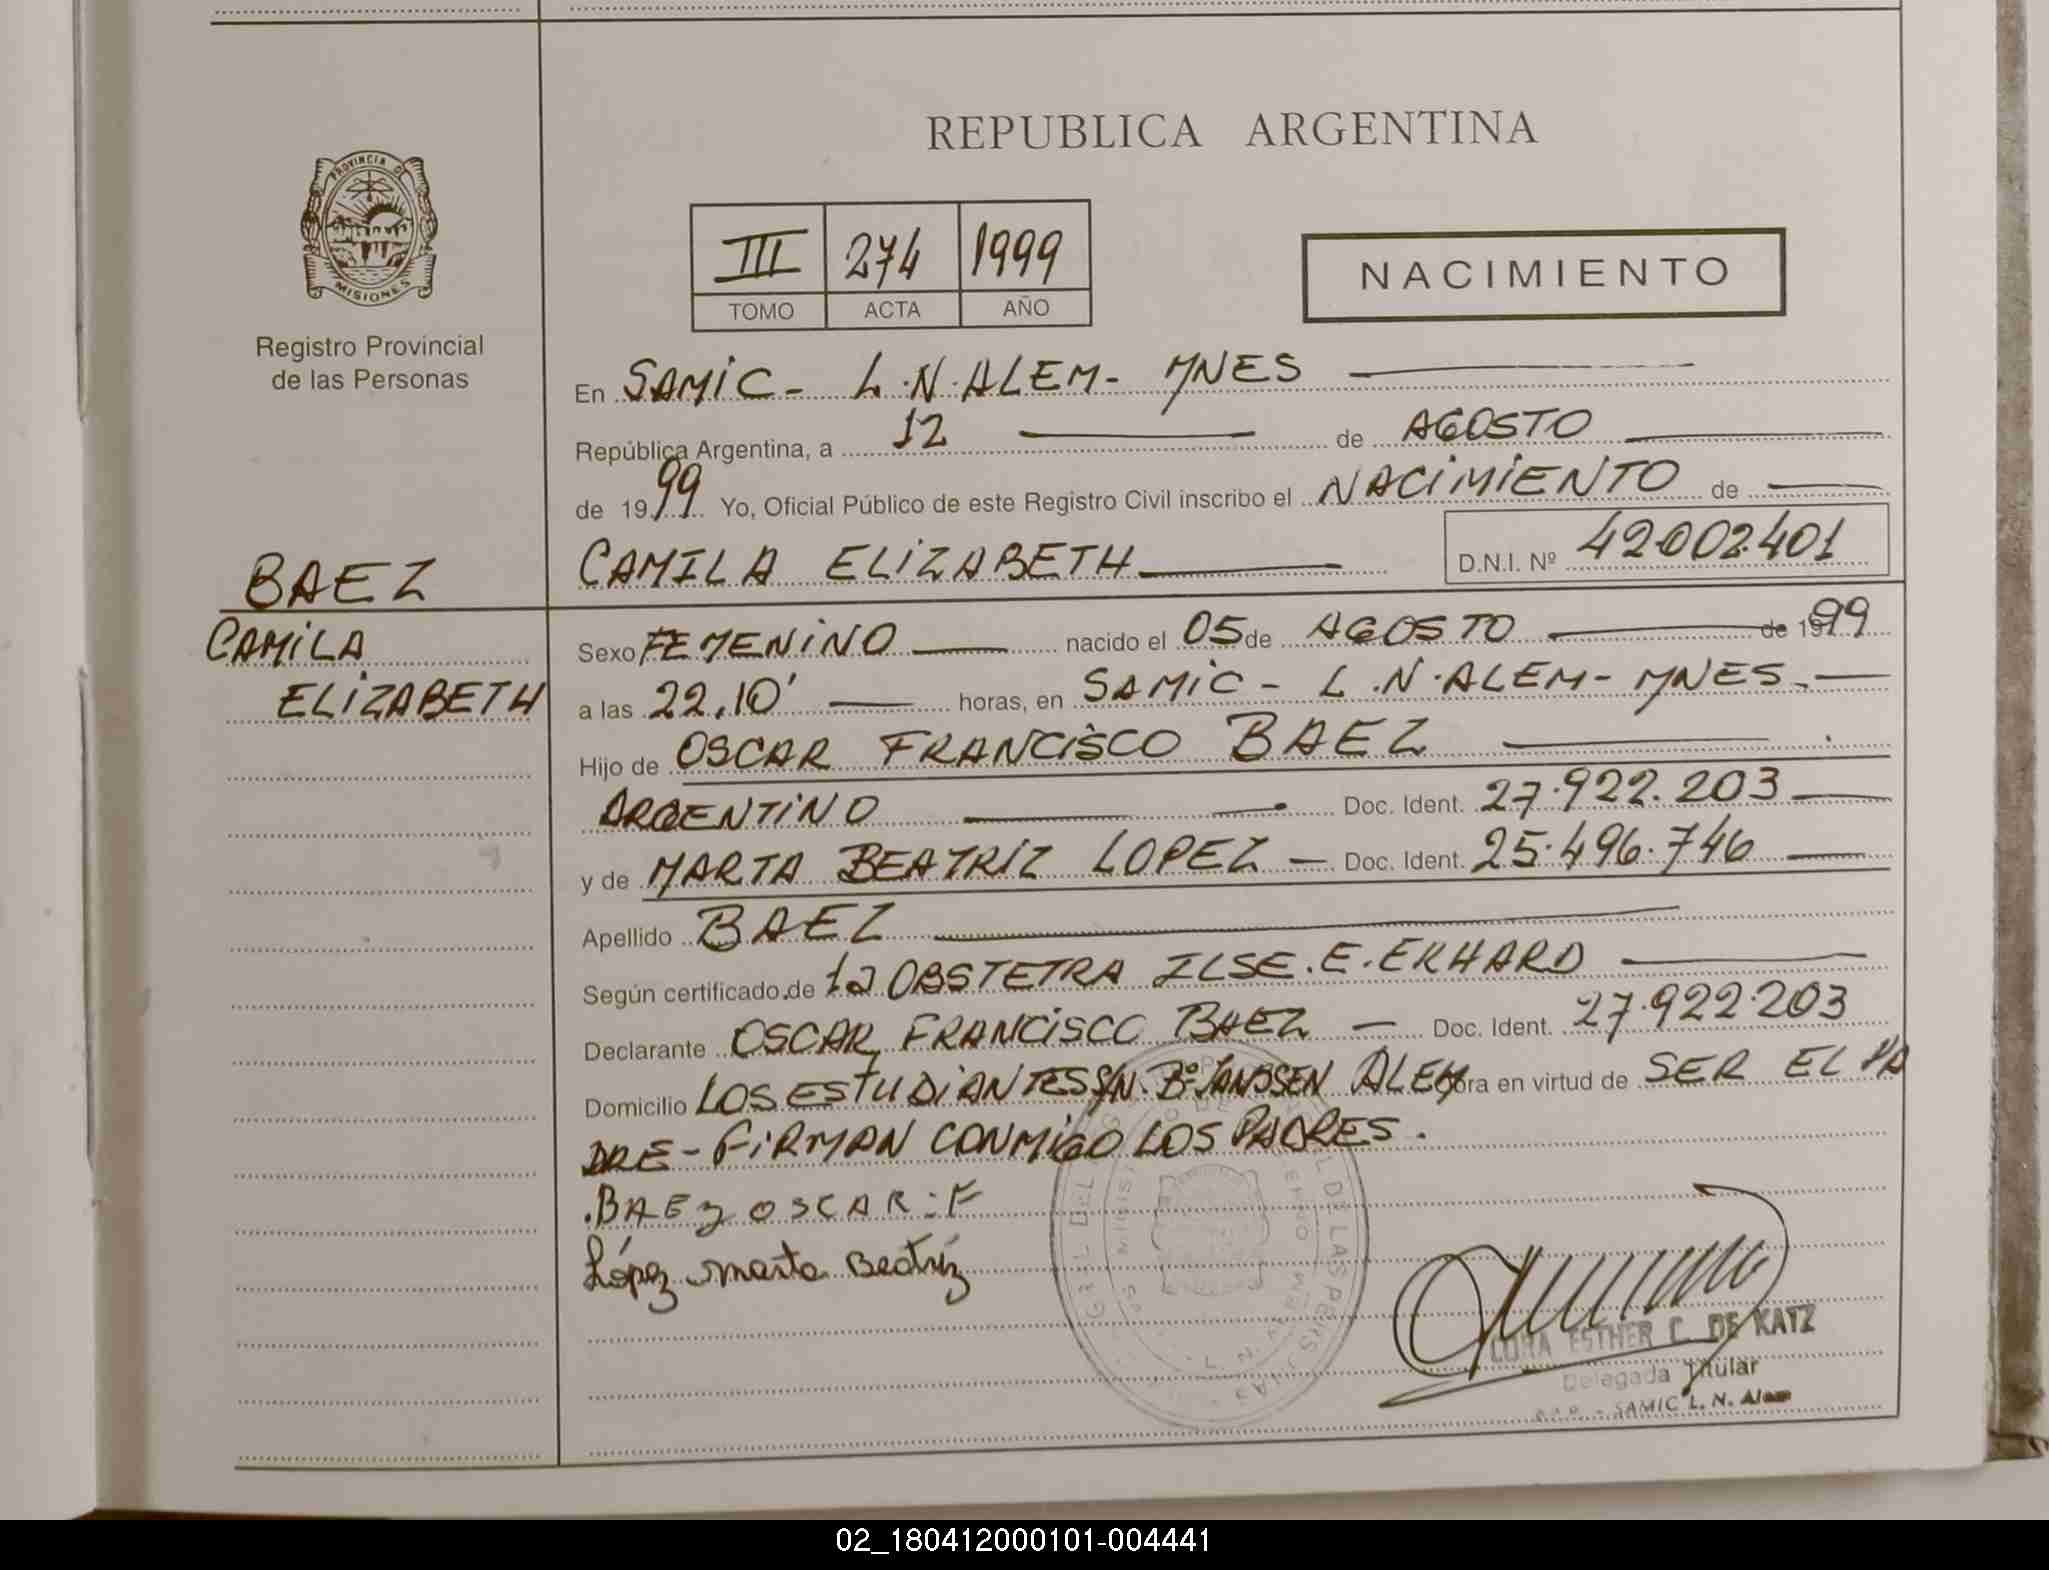 REPUBLICA ARGENTINA
PROVINCIA DE
MISIONES
Registro Provincial
de las Personas
III 274 1999
TOMO ACTA AÑO
NACIMIENTO
En SAMIC - L.N. ALEM - MNES
República Argentina, a 12 de AGOSTO
de 1999 Yo, Oficial Público de este Registro Civil inscribo el NACIMIENTO de
CAMILA ELIZABETH D.N.I. Nº 42.002.401
BAEZ
CAMILA
ELIZABETH
Sexo FEMENINO nacido el 05 de AGOSTO de 1999
a las 22,10' horas, en SAMIC - L.N. ALEM - MNES.
Hijo de OSCAR FRANCISCO BAEZ
ARGENTINO Doc. Ident. 27.922.203
y de MARTA BEATRIZ LOPEZ - Doc. Ident. 25.496.746
Apellido BAEZ
Según certificado de la OBSTETRA ILSE.E.ERHARD
Declarante OSCAR FRANCISCO BAEZ - Doc. Ident. 27.922.203
Domicilio LOS ESTUDIANTES S/N. Bº JANSSEN ALEM obra en virtud de SER EL PA
DRE - FIRMAN CONMIGO LOS PADRES.
BAEZ OSCAR: F
López Marta Beatriz
ESTHER C. DE KATZ
Delegada Titular
SAMIC L. N. Alem
02_180412000101-004441